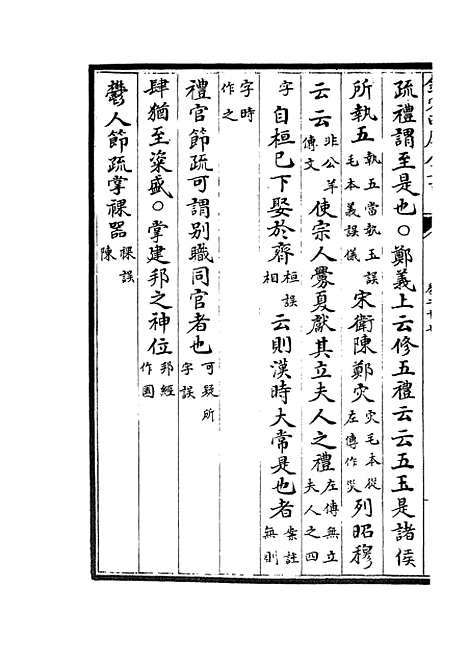 疏禮謂至是也○鄭義上云修五禮云云五玉是諸侯
所執五執五當執玉誤毛本義誤儀宋衛陳鄭灾灾毛本從左傳作災列昭穆
云云非公羊傳文使宗人釁夏獻其立夫人之禮左傳無立夫人之四
字自桓已下娶於齊桓誤相云則漢時大常是也者案註無則
字時作之
禮官節疏可謂別職同官者也可疑所字誤
肆猶至粢盛○掌建邦之神位邦經作國
鬱人節疏掌祼器祼誤陳